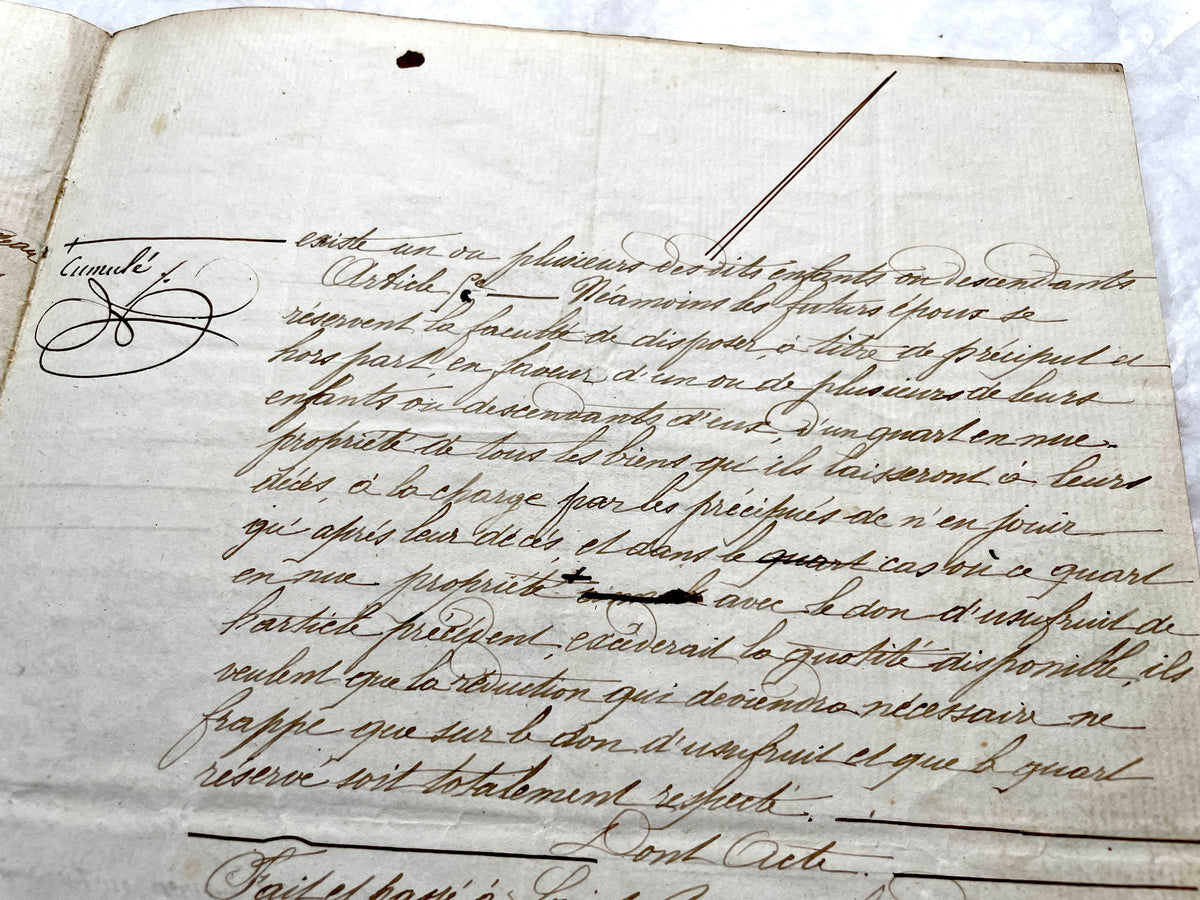 existe un ou plusieurs des dits enfants ou descendants
cumulé
Article Néamoins les futurs époux se
réservent la faculté de disposer, à titre de préciput et
hors part, en faveur d'un ou de plusieurs de leurs
enfants ou descendants d'eux, d'un quart en nue-
propriété de tous les biens qu'ils laisseront à leurs
décès, à la charge par les précipués de n'en jouir
qu'après leur décès, et dans le quart cas où ce quart
en nue propriété + avec le don d'usufruit de
l'article précédent, excéderait la quotité disponible, ils
veulent que la réduction qui deviendra nécessaire ne
frappe que sur le don d'usufruit et que le quart
réservé soit totalement respecté.
Dont Acte.
Fait et passé à